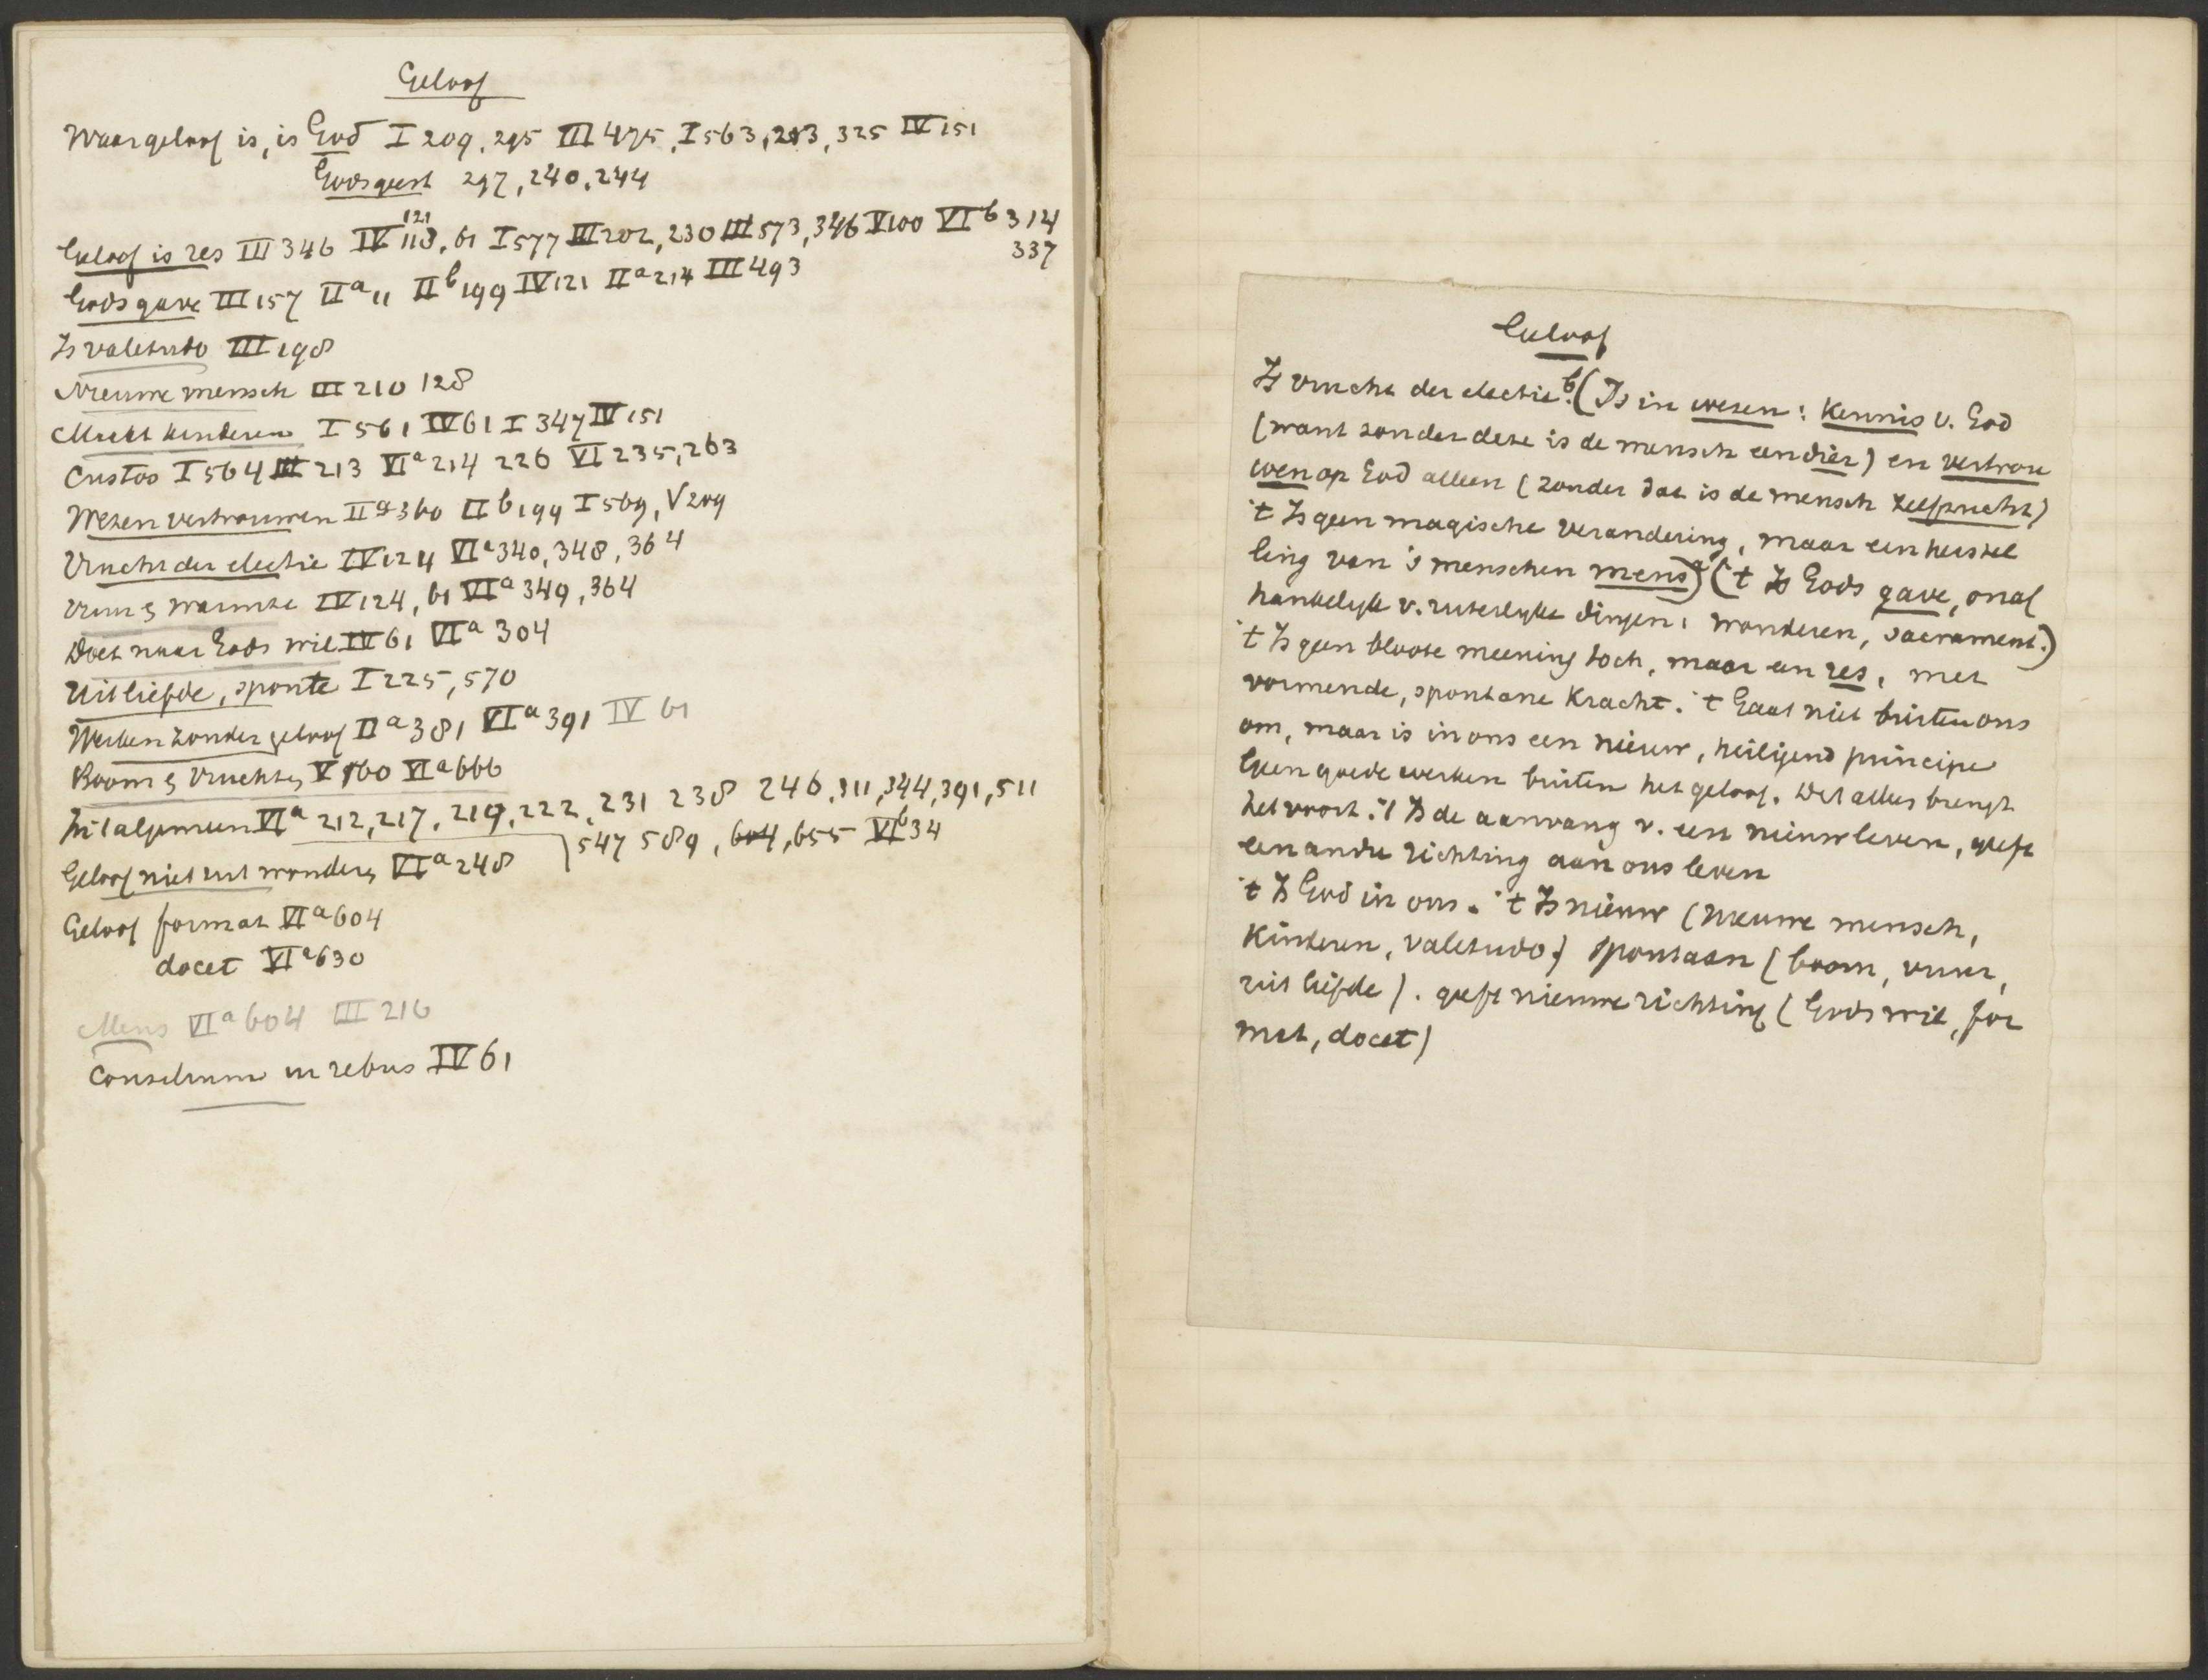 Geloof
Waar geloof is, is God I 209, 295 III 475, I 563, 293, 325 IV 151
Godsgeest 297, 240, 244
Geloof is res III 346 IV 118, 121, 61 I 577 III 202, 230 III 573, 346 V 100 VI b 314
337
Gods gave III 157 II a 11 II b 199 IV 121 II a 214 III 493
Is valetudo III 198
Nieuwe mensch III 210 128
Maakt kinderen I 561 IV 61 I 347 IV 151
Custos I 564 III 213 VI a 214 226 VI 235, 263
Wezen vertrouwen II a 360 II b 199 I 569, V 209
Vrucht der electie IV 124 VI a 340, 348, 364
Vuur & warmte IV 124, 61 VI a 349, 364
Doet naar Gods wil IV 61 VI a 304
Uit liefde, sponte I 225, 570
Werken zonder geloof II a 381 VI a 391 IV 61
Boom & vruchten V 160 VI a 666
In 't algemeen VI a 212, 217, 219, 222, 231 238 246, 311, 344, 391, 511
547 589, 604, 655 VI b 34
Geloof niet uit wonders VI a 248
Geloof format VI a 604
docet VI a 630
Mens VI a 604 III 216
Consilium in rebus IV 61
Geloof
Is vrucht der electie. b (Is in wezen: Kennis v. God
(want zonder deze is de mensch een dier) en vertrou
wen op God alleen (zonder dat is de mensch zelfzucht)
't Is geen magische verandering, maar een herstel
ling van 's menschen mens) a ('t Is Gods gave, onaf
hankelijk v. uiterlijke dingen: wonderen, sacrament.)
't Is geen bloote meening toch, maar een res, met
vormende, spontane Kracht. 't Gaat niet buiten ons
om, maar is in ons een nieuw, heiligend principe
Geen goede werken buiten het geloof. Dit alles brengt
het voort. 't Is de aanvang v. een nieuw leven, geeft
een andre richting aan ons leven
't Is God in ons. 't Is nieuw (nieuwe mensch,
Kinderen, valetudo) spontaan (boom, vuur,
uit liefde). geeft nieuwe richting (Gods wil, for
mat, docet)